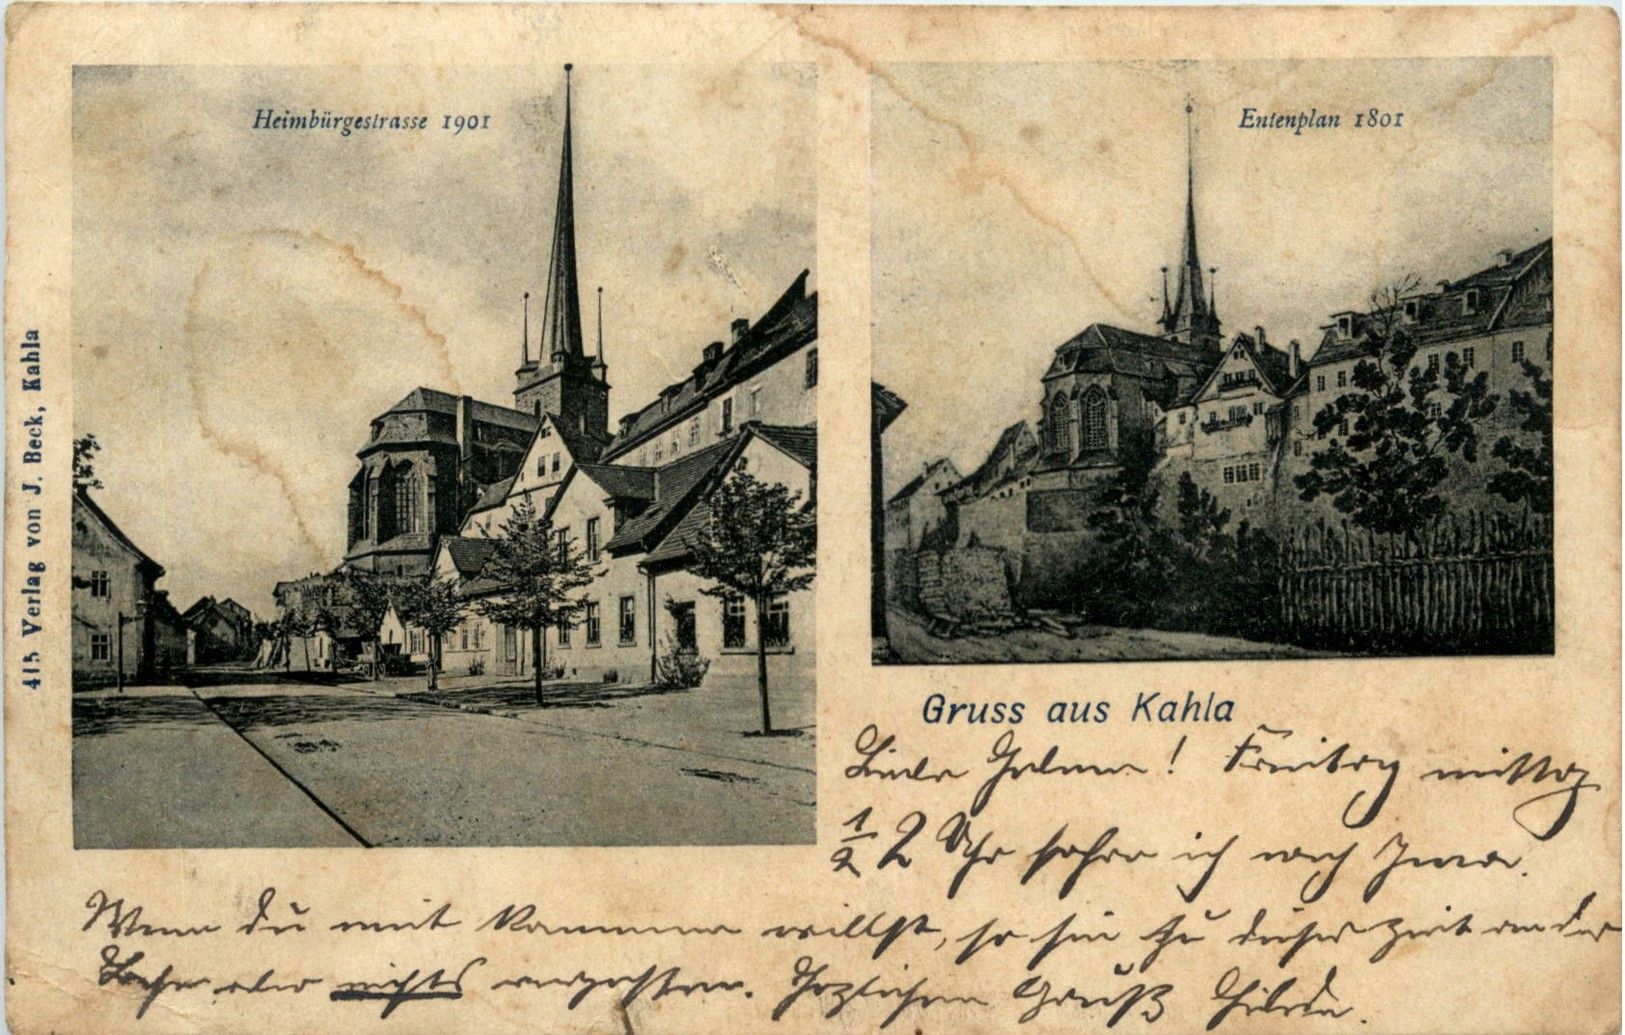 Heimbürgestrasse 1901
Entenplan 1801
415 Verlag von J. Beck, Kahla
Gruss aus Kahla
Liebe ! Freitag mittag
1/2 2 Uhr fahre ich nach Jena.
Wenn du mit kommen willst, so sei zu dieser Zeit an der
Bahn aber nichts vergessen. Herzlichen Gruß Hilda.